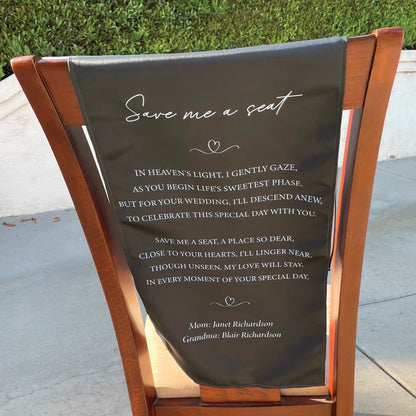 Save me a seat
IN HEAVEN'S LIGHT, I GENTLY GAZE,
AS YOU BEGIN LIFE'S SWEETEST PHASE.
BUT FOR YOUR WEDDING, I'LL DESCEND ANEW,
TO CELEBRATE THIS SPECIAL DAY WITH YOU.
SAVE ME A SEAT, A PLACE SO DEAR,
CLOSE TO YOUR HEARTS, I'LL LINGER NEAR.
THOUGH UNSEEN, MY LOVE WILL STAY.
IN EVERY MOMENT OF YOUR SPECIAL DAY,
Mom: Janet Richardson
Grandma: Blair Richardson